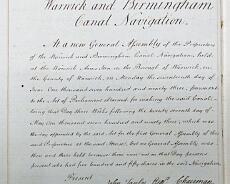 Warwick and Birmingham
Canal Navigation.
At a new General Assembly of the Proprietors
of the Warwick and Birmingham Canal Navigation, held
at the Warwick Arms Inn in the Borough of Warwick, in
the County of Warwick, on Monday the seventeenth day of
June One thousand seven hundred and ninety three, pursuant
to the Act of Parliament
being that Day three Weeks following the twenty seventh day of
May One thousand seven hundred and ninety three, which was
the day appointed by the said Act for the first General Assembly of the
Proprietors at the said House, but no General Assembly was
then and there held
present who had five hundred and fifty shares in said Navigation
Present
John Esqr. Chairman